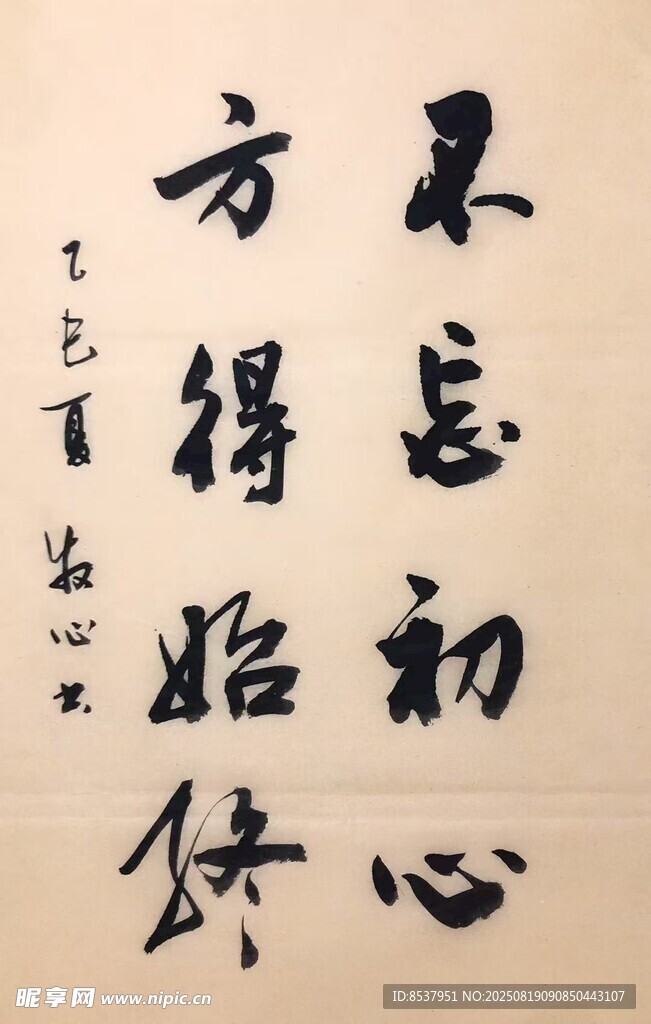 不忘初心
方得始终
乙巳夏 牧心书
昵享网 www.nipic.cn
ID:8537951 NO:20250819090850443107